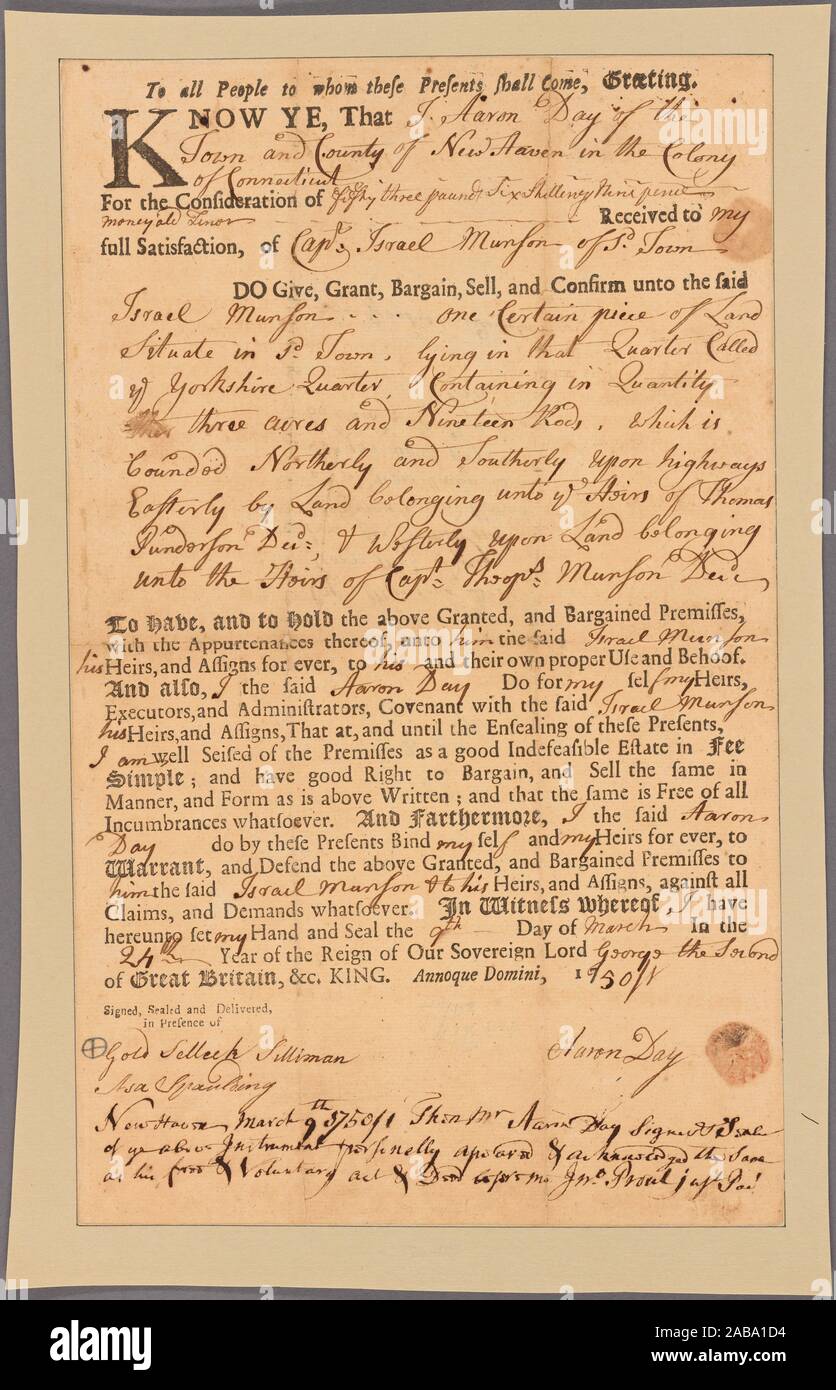 To all People to whom theſe Preſents ſhall Come, Greeting.
KNOW YE, That I Aaron Day of the
Town and County of New Haven in the Colony
of Connecticut
For the Conſideration of three pounds Six Shillings Nine pence
money old Tenor Received to my
full Satisfaction, of Capt. Israel Munſon of sd. Town
DO Give, Grant, Bargain, Sell, and Confirm unto the ſaid
Israel Munſon . . . . one Certain piece of Land
Situate in sd. Town, lying in that Quarter Called
ye Yorkshire Quarter, Containing in Quantity
three acres and Nineteen Rods, which is
bounded Northerly and Southerly upon highways
Easterly by Land belonging unto ye Heirs of Thomas
Punderson Decd., & Westerly upon Land belonging
unto the Heirs of Capt. Theops. Munſon Decd
To Have, and to Hold the above Granted, and Bargained Premiſſes,
with the Appurtenances thereof, unto him the ſaid Israel Munſon
his Heirs, and Aſſigns for ever, to his and their own proper Uſe and Behoof.
And alſo, I the ſaid Aaron Day Do for my ſelf my Heirs,
Executors, and Adminiſtrators, Covenant with the ſaid Israel Munſon
his Heirs, and Aſſigns, That at, and until the Enſealing of theſe Preſents,
I am well Seiſed of the Premiſſes as a good Indefeaſible Eſtate in Fee
Simple; and have good Right to Bargain, and Sell the ſame in
Manner, and Form as is above Written; and that the ſame is Free of all
Incumbrances whatſoever. And Farthermore, I the ſaid Aaron
Day do by theſe Preſents Bind my ſelf and my Heirs for ever, to
Warrant, and Defend the above Granted, and Bargained Premiſſes to
him the ſaid Israel Munſon & to his Heirs, and Aſſigns, againſt all
Claims, and Demands whatſoever. In Witneſs whereof, I have
hereunto ſet my Hand and Seal the 9th Day of March In the
24th Year of the Reign of Our Sovereign Lord George the Second
of Great Britain, &c. KING. Annoque Domini, 1750/1
Signed, Sealed and Delivered,
in Preſence of
Gold Selleck Silliman Aaron Day
Asa Spaulding
New Haven March 9th 1750/1 Then Mr Aaron Day Signer & Sealer
of ye above Instrument personally apeared & acknowledged the Same
as his free & Voluntary act & Deed before me Jno. Prout Just Pac
alamy
alamy
alamy
alamy
Image ID: 2ABA1D4
www.alamy.com